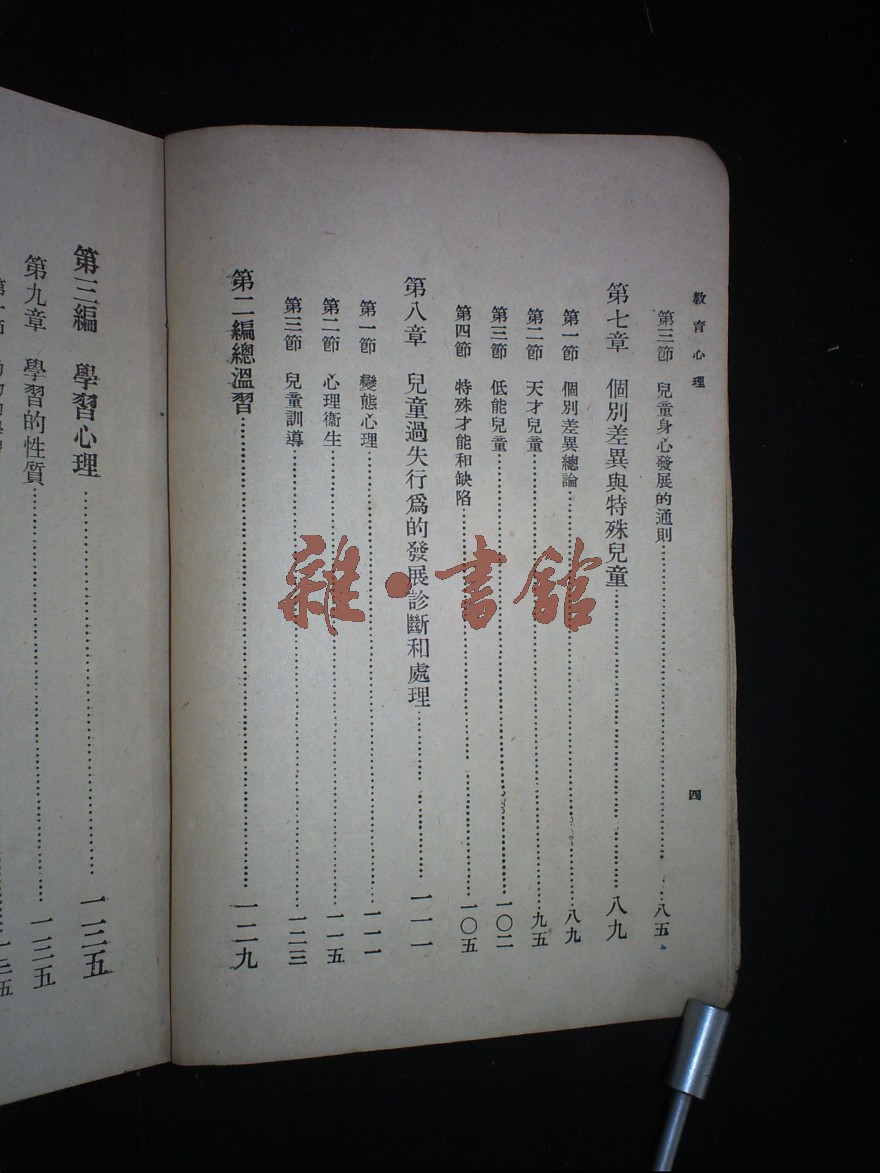 教育心理
四
第三節 兒童身心發展的通則 八五
第七章 個別差異與特殊兒童 八九
第一節 個別差異總論 八九
第二節 天才兒童 九五
第三節 低能兒童 一〇二
第四節 特殊才能和缺陷 一〇五
第八章 兒童過失行爲的發展診斷和處理 一一一
第一節 變態心理 一一一
第二節 心理衞生 一一五
第三節 兒童訓導 一二三
第二編總溫習 一二九
第三編 學習心理 一三五
第九章 學習的性質 一三五
雜·書館